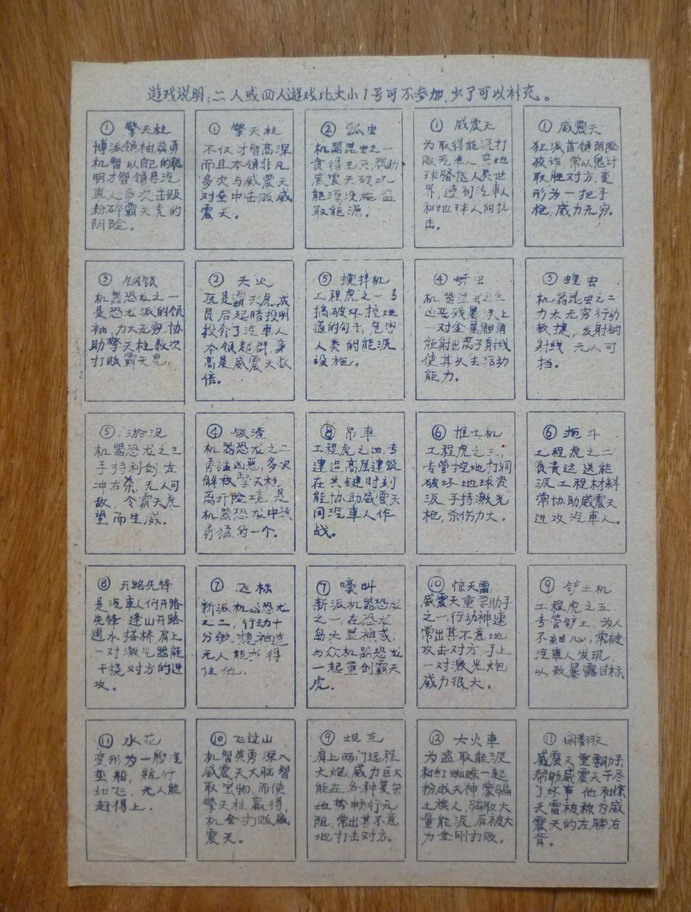 游戏说明:二人或四人游戏比大小1号可不参加,少了可以补充。
① 擎天柱
博派领袖英勇
机智以自己的聪
明才智领导汽
車人多次击败
粉碎霸天虎的
阴险。
① 擎天柱
不仅才智高深
而且本领非凡
多次与威震天
对垒中击败威
震天。
② 瓢虫
机器昆虫之一
取能源。
① 威震天
为取得能源打
界,遭到汽車人
和地球人的抗
击。
① 威震天
狂派首领阴险
狡诈 常以鬼计
取胜对方,变
形为一把手
枪,威力无穷。
③ 钢锁
机器恐龙之一
是恐龙派的领
袖,力大无穷,协
助擎天柱数次
打败霸天虎。
② 天火
原是霸天虎成
员后起暗投明
投介了汽車人
高是威震天数
倍。
⑤ 搅拌机
工程虎之一专
搞破坏 挖地
道的勾干,包围
人类的能源
设施。
④
一对金属翅角
能射出离子射线
使其失去活动
能力。
③ 蝗虫
机器昆虫之二
力大无穷行动
敏捷,发射钠
射线 无人可
挡。
⑤ 淤泥
机器恐龙之三
手持利剑左
冲右杀,无人可
敌,令霸天虎
望而生威。
④ 铁渣
机器恐龙之二
勇活凶恶,多次
解救擎天柱,
离开险境,是
机器恐龙中最
勇猛的一个。
⑧ 吊車
工程虎之四,专
建造高层建筑
在关键时刻
能协助威震天
同汽車人作
战。
⑥ 推土机
工程虎之三,
专管挖地打洞
破坏地球资
源,手持激光
枪,杀伤力大。
⑥ 拖斗
工程虎之二
负责运送能
源,工程材料
常协助威震天
进攻汽車人。
⑧ 开路先锋
是汽車人们开路
先锋 逢山开路
遇水搭桥 肩上
一对激光器能
干挠对方的进
攻。
⑦ 飞标
新派机器恐龙
之二,行动十
无人能
住他。
⑦ 嚎叫
新派机器恐龙
之一,在恐龙
岛大显神威,
与众机器恐龙
一起重创霸天
虎。
⑩ 惊天雷
威震天重要助手
之一,行动神速
常出其不意地
攻击对方,手上
一对激光炮
威力很大。
⑨ 铲土机
工程虎之五
专管铲土,为人
不细心,常被
汽車人发现,
以致暴露目标。
⑪ 水花
变形为一艘汽
垫船,航行
如飞,无人能
赶得上。
⑩ 飞过山
机智英勇深入
威震天大脑智
取宝物,而使
擎天柱赢得
机会打败威
震天。
⑨ 坦克
肩上两门远程
大炮,威力巨大
能在各种复杂
地势畅行无
阻,常出其不意
地打击对方。
⑫ 大火車
为盗取能源
和红蜘蛛一起
扮威天神蒙骗
之族人,骗取大
量能源,后被大
力金刚打败。
⑪ 闹翻天
威震天重要助手
帮助威震天干尽
了坏事 他和惊
天雷被称为威
震天的左膀右
背。